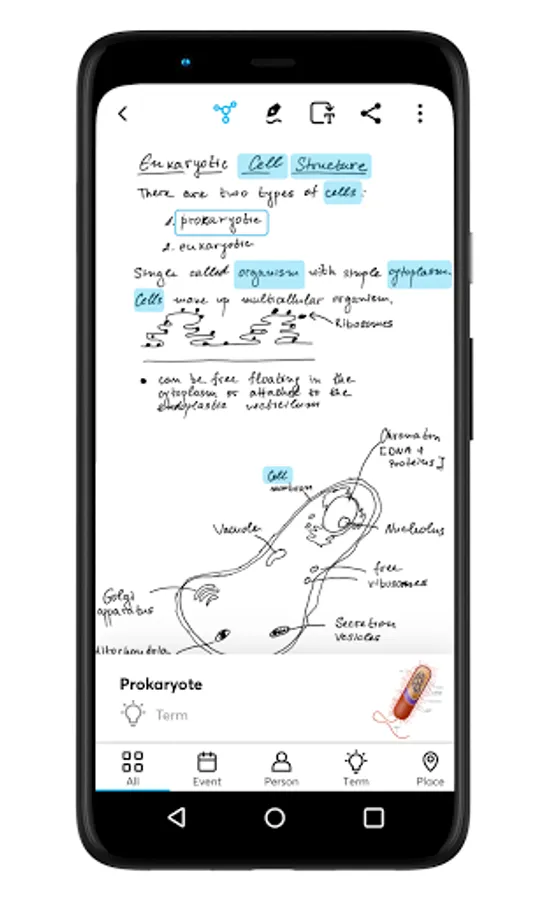 Eukaryotic Cell Structure
There are two types of cells:
1. prokaryotic
2. eukaryotic
Single called organism with simple cytoplasm.
Cells make up multicallular organism.
Ribosomes
• can be free floating in the
cytoplasm or attached to the
endoplastic
Chromatin
[DNA +
Proteins]
Cell
membrane
Vacuole
Nucleolus
free
ribosomes
Golgi
apparatus
Secretion
vesicles
Prokaryote
Term
All
Event
Person
Term
Place